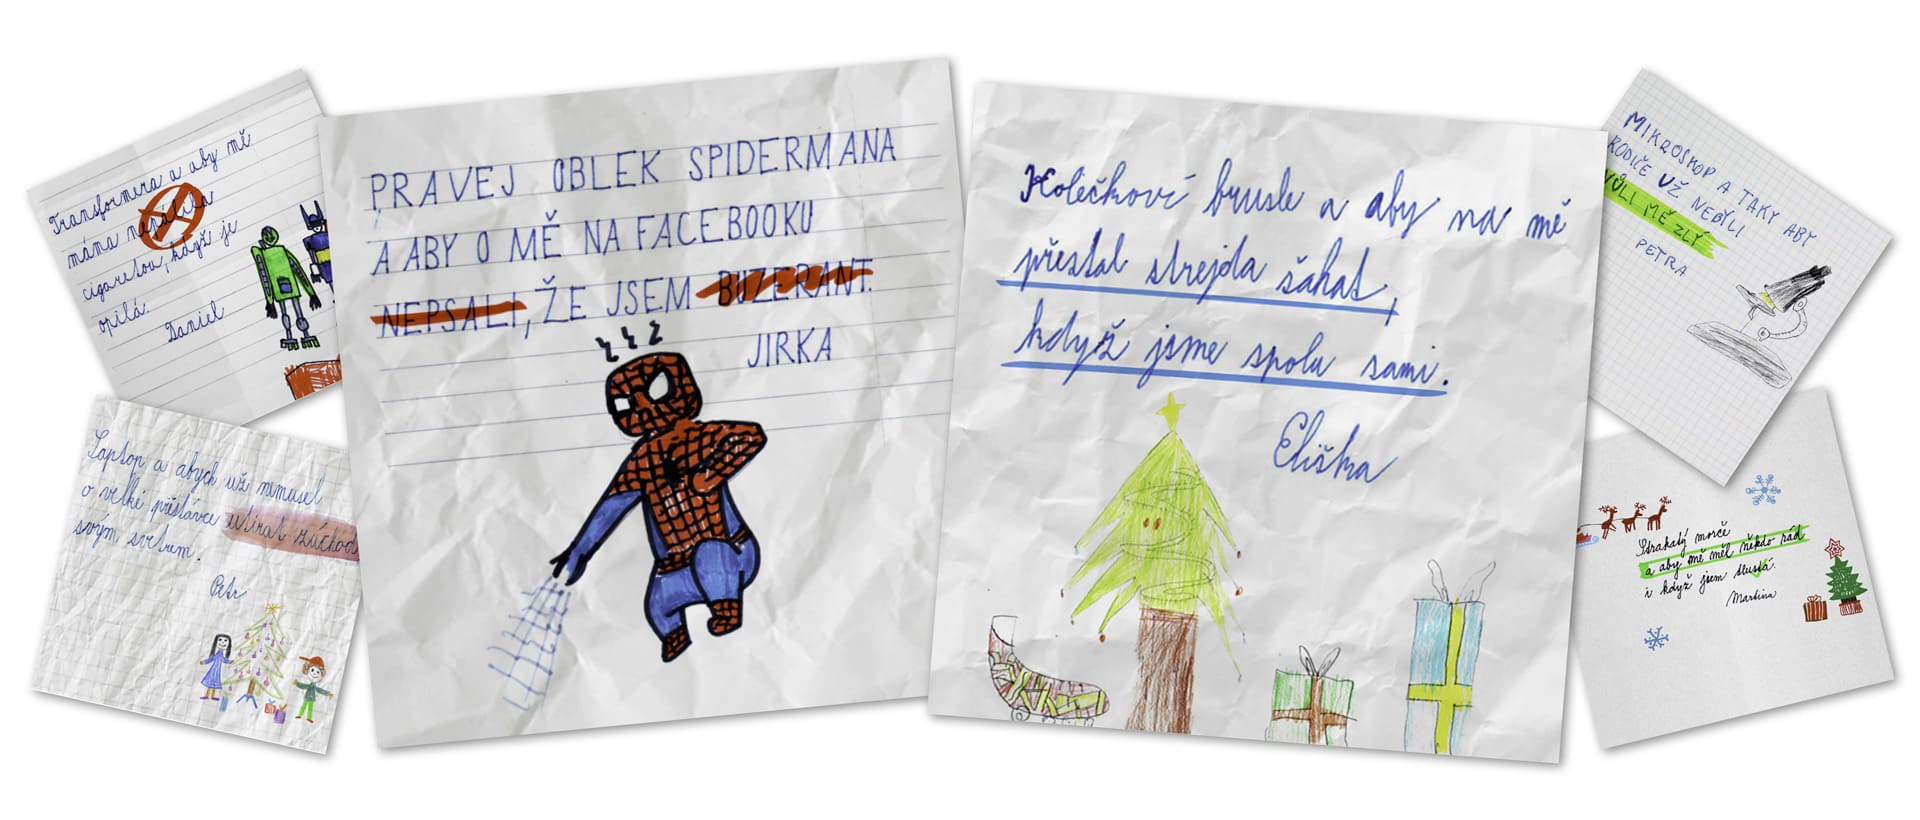 Transformera a aby mě
máma nepálila
cigaretou, když je
opilá.
Daniel
Laptop a abych už nemusel
o velké přestávce utírat záchod
svým svetrem.
Petr
PRAVEJ OBLEK SPIDERMANA
A ABY O MĚ NA FACEBOOKU
NEPSALI, ŽE JSEM BUZERANT.
JIRKA
Kolečkoví brusle a aby na mě
přestal strejda šahat,
když jsme spolu sami.
Eliška
MIKROSKOP A TAKY ABY
RODIČE UŽ NEBYLI
VŮLI MĚ ZLÝ
PETRA
Strakatý morče
a aby mě měl někdo rád
i když jsem tlustá.
Martina